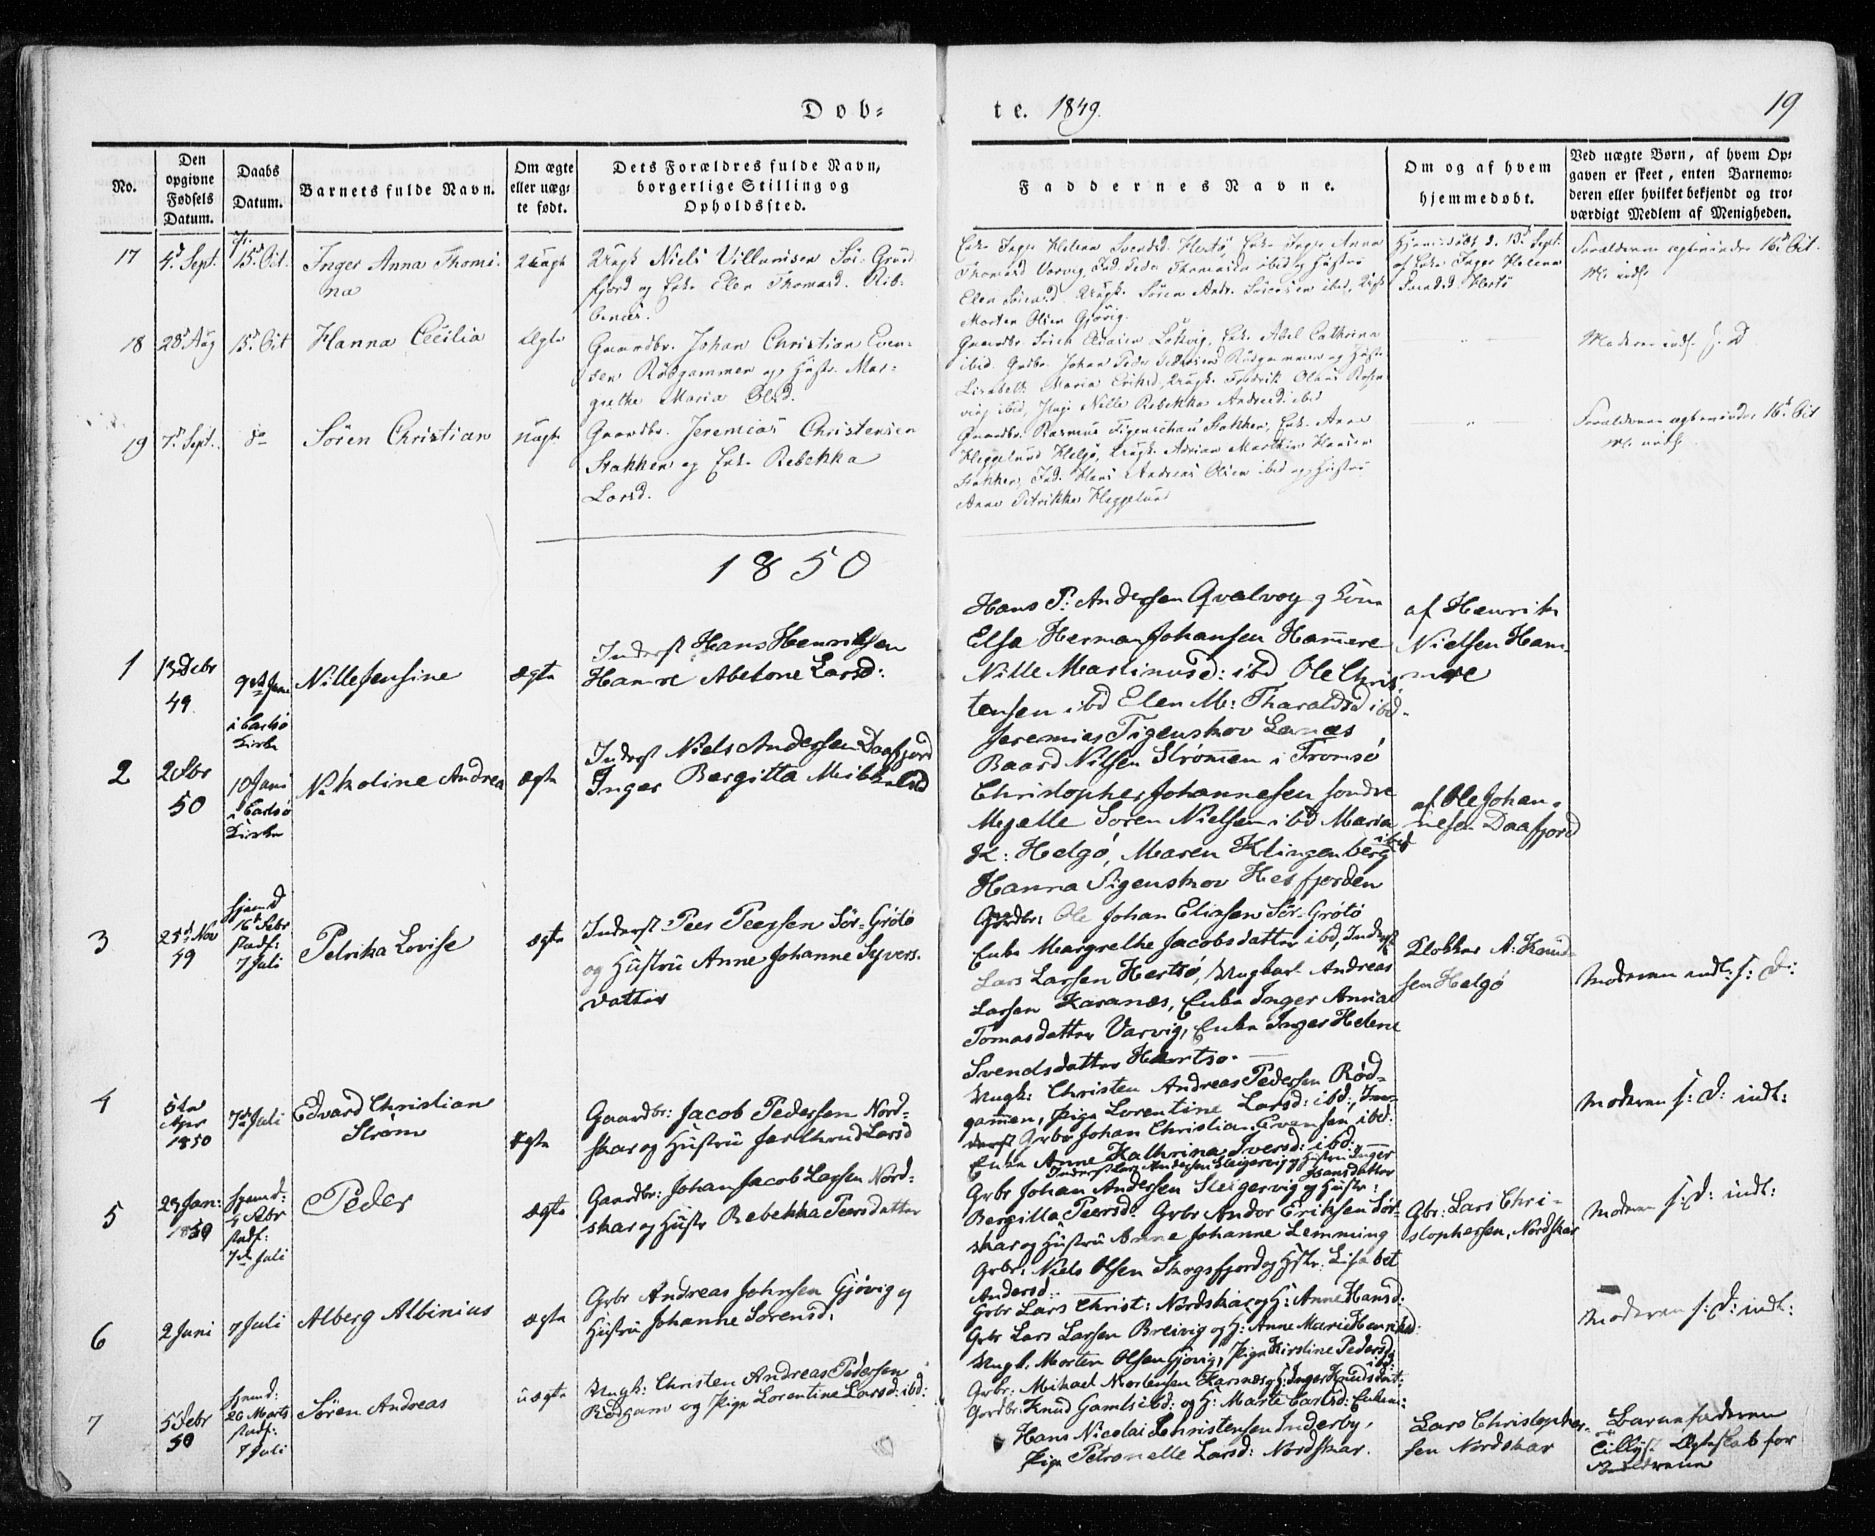 Døb-
te. 1849.
19
No.
Den opgivne Fødsels Datum.
Daabs Datum.
Barnets fulde Navn.
Om ægte eller uæg-te født.
Dets Forældres fulde Navn, borgerlige Stilling og Opholdssted.
Faddernes Navne.
Om og af hvem hjemmedøbt.
Ved uægte Børn, af hvem Op-
gaven er skeet, enten Barnemo-
deren eller hvilket bekjendt og tro-
værdigt Medlem af Menigheden.
17
4d Sept.
15d Oct.
Inger Anna Thomi-
na
Uægte
Ungk. Niels Villumsen Sör-Grund-
fjord og Enke Elen Thomasd.
Enke Inger Helena Svendsd. Hersö, Enke Inger Anna
Thomasd Varvig, Peder Thomasen ibid og Hustru
Elen Ungk. Sören Andr. Sörensen ibid, Ungk.
Morten Olsen Gjövig.
Hjemmedöbt d. 13d Sept.
af Enke Inger Helena
Svendsd. Hersö
Forældrenes 16d Oct.
18
28d Aug
15d Oct
Hanna Cecilia
Ægte
Gaardbr. Johan Christian Even-
sen Rödgammen og Hustr. Mar-
grethe Maria Olsd.
Enke Abel Cathrina
ibid. Gardbr. Johan Peder Rödgammen og Hustr
Lisabeth Maria Eriksd, Ungk. Fredrik Olaus
ibid, Pige Nille Rebekka Andersd: ibid
Moderen indl. s. D
19
7d Sept.
do
Sören Christian
Uægte
Gaardbr. Jeremias Christensen
Stakken og Enke Rebekka
Larsd.
Gaardbr. Rasmus Figenschau Stakken, Enke Anna
Heggelund Helgö, Ungk. Adrian Marthin Hansen
Stakken, Hans Andreas Olsen ibid og Hustru
Anne Petrikke Heggelund
Forældrenes 16d Oct
1850
1
13 Debr
49
9de Janr
i Carlsö
Kirke
Nille Jensine
ægte
Inderst Hans Henriksen
Hamre Abelone Larsd:
Hans P: Andersen Qvalvog g Kone
Elsa Herman Johansen Hamere
Nille Martinusd: ibd Ole Chris-
tensen ibd Elen M: Tharaldsd ibd.
Jeremias Figenskov Larnæs
af Henrik
Nielsen Ham-
mre
2
50
10 Jani
i Carlsö
Kirke
Nikoline Andrea
ægte
Inderst Niels Andersen Daafjord
Inger Bergitta Mikkelsd
Baard Nilsen Strömen i Tromsö
Christopher Johannesen söndre
Mejelle Soren Nielsen ibd Maria
K: Helgö, Maren Klingenberg ibd
Hanna Figenskov Hesfjorden
af Ole Johan-
nesen Daafjord
3
25d Nov
49
hjemd
16d Febr
stadf:
7 Juli
Petrika Lovise
ægte
Inderst Peer Peersen Sör-Grötö
og Hustru Anne Johanne Syvers-
datter
Gardbr: Ole Johan Eliasen Sör-Grötö
Enke Margrethe Jacobsdatter ibd, Inderst
Lars Larsen Hertsö, Ungkarl Andreas
Larsen Karanæs, Enke Inger Anna
Tomasdatter Varvig, Enke Inger Helene
Svendsdatter Hertsö.
Klokker A: Knud-
sen Helgö
Moderen indl: s: D:
4
5te
Apr
1850
7de Juli
Edvard Christian
Strøm
Ægte
Gaardbr: Jacob Pedersen Nord-
skar og Hustru Jerthrud Larsd
Ungk: Christen Andreas Pedersen Rød-
gammen, Pige Lorentine Larsd: ibd:,
Grbr Johan Christian Evensen ibd:
Enke Anne Kathrina Iversd: ibd:
Moderen s: D: indl:
5
23 Jan:
1850
hjemd:
4 Febr
stadf:
7de Juli
Peder
ægte
Gaardbr: Johan Jacob Larsen Nord-
skar og Hustr Rebekka Peersdatter
Inderst Lars Andersen Sleigervig og Hustru Inger
Hansdatter
Grbr Johan Andersen Sleigervig og Hustr:
Bergitta Peersd: Grbr Andor Eriksen Sör-
skar og Hustru Anne Johanne Lemming
Grbr: Niels Olsen Skogsfjord og Hstr: Lisabet
Andersd:
Gbr: Lars Chri-
stophersen, Nordskar
Moderen s: D: indl:
6
2 Juni
7 Juli
Alberg Albinius
ægte
Grbr Andreas Johnsen Gjövig og
Hustru Johanne Sörensd.
Grbr Lars Christ: Nordskar og H: Anne Hansd.
Grbr Lars Larsen Breivig og H: Anne Marie Henriksd:
Ungk: Morten Olsen Gjövig, Pige Kirstine Pedersd
ibd:
Moderen s: D: indl:
7
5 Febr
50
hjemd:
26 Marts
stadf:
7 Juli
Sören Andreas
uægte
Ungk: Christen Andreas Pedersen
Rödgam og Pige Lorentine Larsd: ibd:
Grbr: Mikael Mortensen Karsnæs og H: Inger Knudsdat:
Gardbr: Knud Gamst ibd: og H: Marte Carlsd:
Hans Nicolai Christensen Inderby,
Pige Petronelle Larsd: Nordskar.
Lars Christopher-
sen Nordskar
Barnefaderen
Ægteskab for